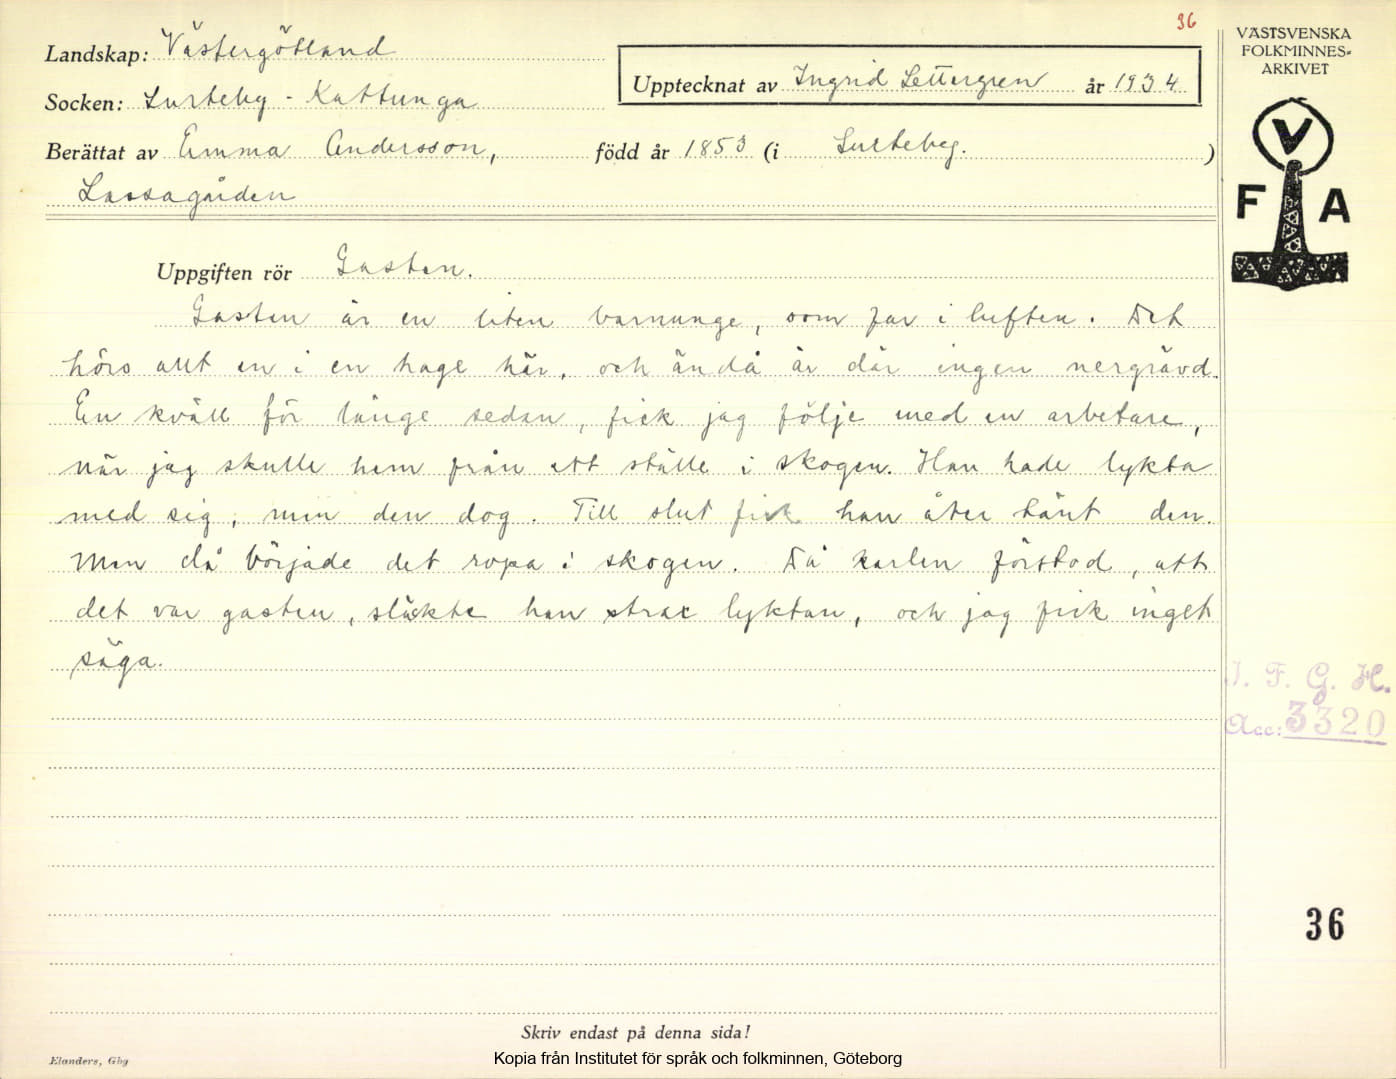 36
VÄSTSVENSKA
FOLKMINNES=
ARKIVET
V
F A
Landskap: Västergötland
Upptecknat av Ingrid Settergren år 1934
Socken: Surteby - Kattunga
Berättat av Emma Andersson, född år 1853 (i Surteby. )
Lassagården
Uppgiften rör Gasten.
Gasten är en liten barnunge, som far i luften. Det
hörs allt en i en hage här, och ändå är där ingen nergrävd.
En kväll för länge sedan, fick jag följe med en arbetare,
när jag skulle hem från ett ställe i skogen. Han hade lykta
med sig, men den dog. Till slut fick han åter tänt den.
Men då började det ropa i skogen. Då karlen förstod, att
det var gasten, släckte han strax lyktan, och jag fick inget
säga.
I. F. G. H.
Acc: 3320
36
Skriv endast på denna sida!
Elanders, Gbg
Kopia från Institutet för språk och folkminnen, Göteborg